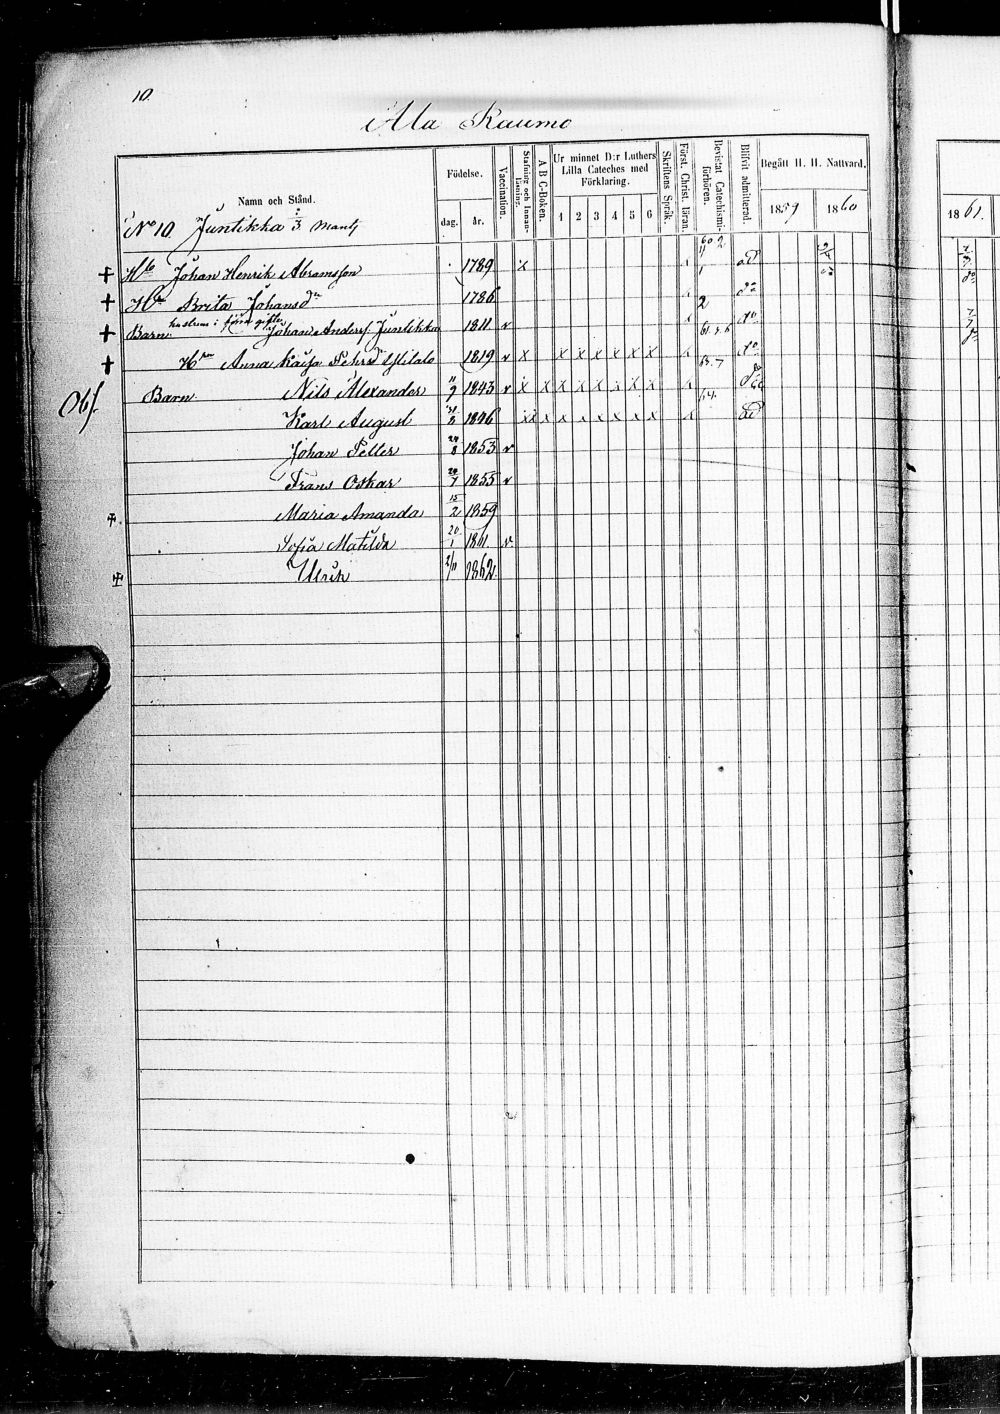 10.
Ala Raumo
Namn och Stånd.
Födelse.
dag. år.
Vaccination.
Stafning och Innanläsning.
A B C-Boken.
Ur minnet D:r Luthers Lilla Cateches med Förklaring.
1 2 3 4 5 6
Skriftens Språk.
Först. Christ. läran.
Bevistat Catechismiförhören.
Blifvit admitterad.
Begått H. H. Nattvard.
1859 1860
1861.
No 10 Juntikka 1/3 Mantl
+ Johan Henrik Abramsson 1789 x
+ Brita Johansdr 1786
+ Barn Johan Anders Juntikka 1811 v
+ Hu Anna Kaisa Pehrsd 1819 v x x x x x x x
Obs. Barn Nils Alexander 11/9 1843 v x x x x x x x x
Karl August 31/8 1846 x x x x x x x x
Johan Petter 24/8 1853 v
Frans Oskar 20/7 1855 v
Maria Amanda 15/2 1859
Sofia Matilda 20/1 1861 v
Ulrik 2/11 1862